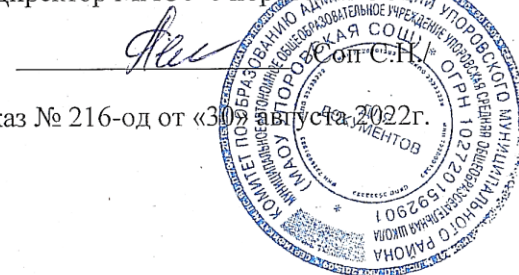 директор МАОУ
Соп С.Н.
каз № 216-од от «30» августа 2022г.
КОМИТЕТ ПО ОБРАЗОВАНИЮ АДМИНИСТРАЦИИ УПОРОВСКОГО МУНИЦИПАЛЬНОГО РАЙОНА
МУНИЦИПАЛЬНОЕ АВТОНОМНОЕ ОБЩЕОБРАЗОВАТЕЛЬНОЕ УЧРЕЖДЕНИЕ УПОРОВСКАЯ СРЕДНЯЯ ОБЩЕОБРАЗОВАТЕЛЬНАЯ ШКОЛА
(МАОУ УПОРОВСКАЯ СОШ) * ОГРН 1027201592901
ДЛЯ
ДОКУМЕНТОВ